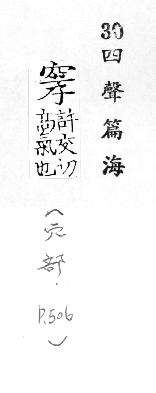 30 四聲篇海
許交切
高氣也
(穴部.P.506)